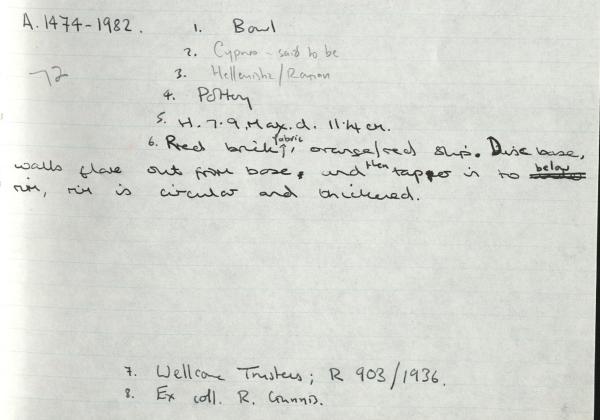 A.1474-1982. 1. Bowl
2. Cyprus - said to be
72 3. Hellenistic/Roman
4. Pottery
5. H. 7.9, Max. d. 11.4 cm.
6. Red brick fabric, orange/red slip. Disc base,
walls flare out from base, and then tapper in to below
rim, rim is circular and thickened.
7. Wellcome Trustees; R 903/1936.
8. Ex coll. R. Gunnis.